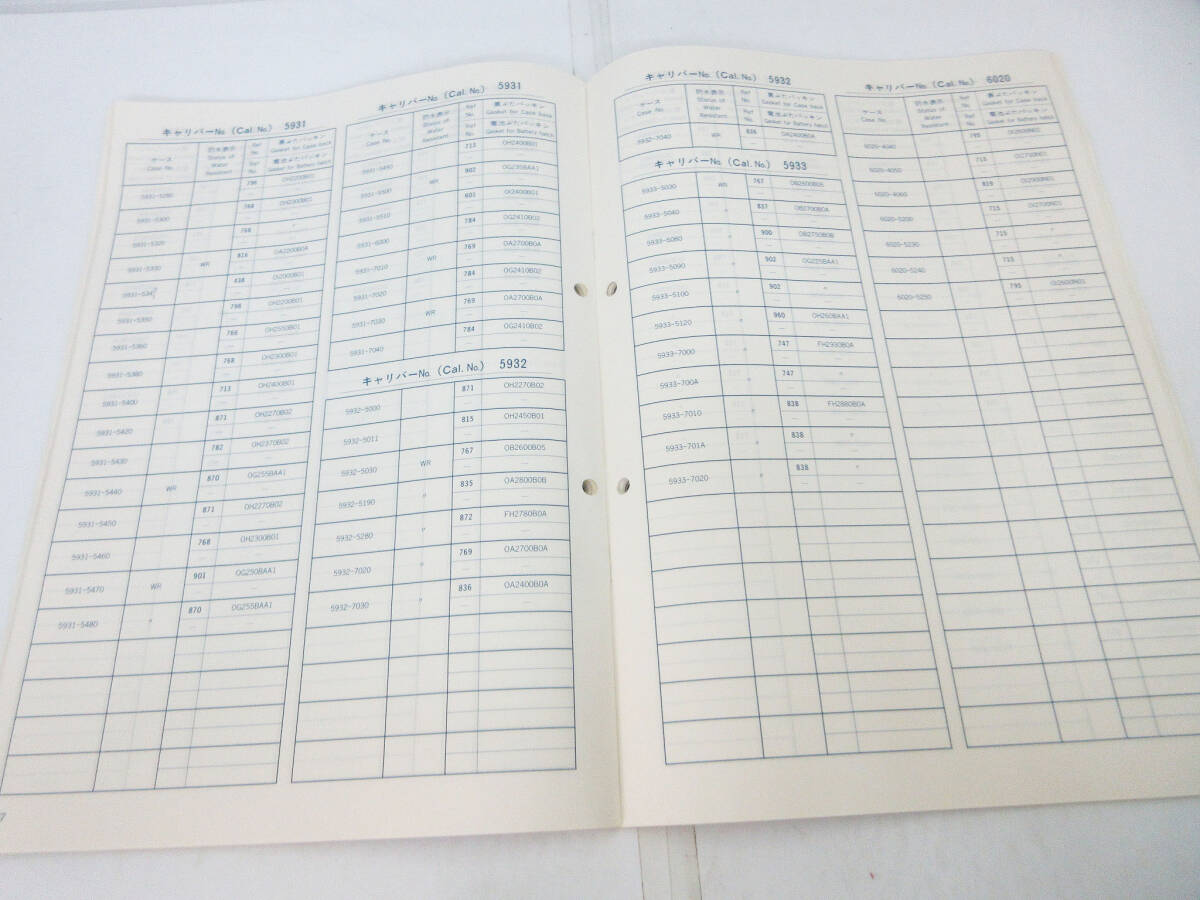 キャリバーNo.（Cal. No.） 5931
ケース Case No. 防水表示 Status of Water Resistant Ref No. 裏ぶたパッキン Gasket for Case back
Ref No. 電池ぶたパッキン Gasket for Battery hatch
5931-5280 798 OH2200B01
5931-5300 768 OH2300B01
5931-5320 768 〃
5931-5330 WR 816 OA2200B0A
838 OI2000B01
5931-5350 798 OH2200B01
5931-5360 766 OH2550B01
5931-5380 768 OH2300B01
5931-5400 713 OH2400B01
5931-5420 871 OH2270B02
5931-5430 782 OH2370B02
5931-5440 WR 870 OG255BAA1
5931-5450 871 OH2270B02
5931-5460 768 OH2300B01
5931-5470 WR 901 OG250BAA1
5931-5480 〃 870 OG255BAA1
7
キャリバーNo.（Cal. No.） 5931
ケース Case No. 防水表示 Status of Water Resistant Ref No. 裏ぶたパッキン Gasket for Case back
Ref No. 電池ぶたパッキン Gasket for Battery hatch
5931-5490 713 OH2400B01
5931-5500 WR 902 OG235BAA1
5931-5510 601 OI2400B01
5931-6000 784 OG2410B02
5931-7010 WR 769 OA2700B0A
5931-7020 784 OG2410B02
5931-7030 WR 769 OA2700B0A
5931-7040 784 OG2410B02
キャリバーNo.（Cal. No.） 5932
5932-5000 871 OH2270B02
5932-5011 815 OH2450B01
5932-5030 WR 767 OB2600B05
5932-5190 〃 835 OA2800B0B
5932-5280 〃 872 FH2780B0A
5932-7020 〃 769 OA2700B0A
5932-7030 〃 836 OA2400B0A
キャリバーNo.（Cal. No.） 5932
ケース Case No. 防水表示 Status of Water Resistant Ref No. 裏ぶたパッキン Gasket for Case back
Ref No. 電池ぶたパッキン Gasket for Battery hatch
5932-7040 WR 836 OA2400B0A
キャリバーNo.（Cal. No.） 5933
5933-5030 WR 767 OB2600B05
5933-5040 〃 837 OB2700B0A
5933-5080 〃 900 OB2750B0B
5933-5090 〃 902 OG235BAA1
5933-5100 〃 902 〃
5933-5120 〃 960 OH260BAA1
5933-7000 〃 747 FH2930B0A
5933-700A 〃 747 〃
5933-7010 〃 838 FH2880B0A
5933-701A 〃 838 〃
5933-7020 〃 838 〃
キャリバーNo.（Cal. No.） 6020
ケース Case No. 防水表示 Status of Water Resistant Ref No. 裏ぶたパッキン Gasket for Case back
Ref No. 電池ぶたパッキン Gasket for Battery hatch
6020-4040 795 OI2600N01
6020-4050 715 OI2700N01
6020-4060 819 OI2900N01
6020-5200 715 OI2700N01
6020-5230 715 〃
6020-5240 715 〃
6020-5250 795 OI2600N01